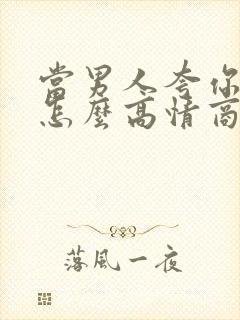 當男人夸你
怎麼高情商
落風一夜